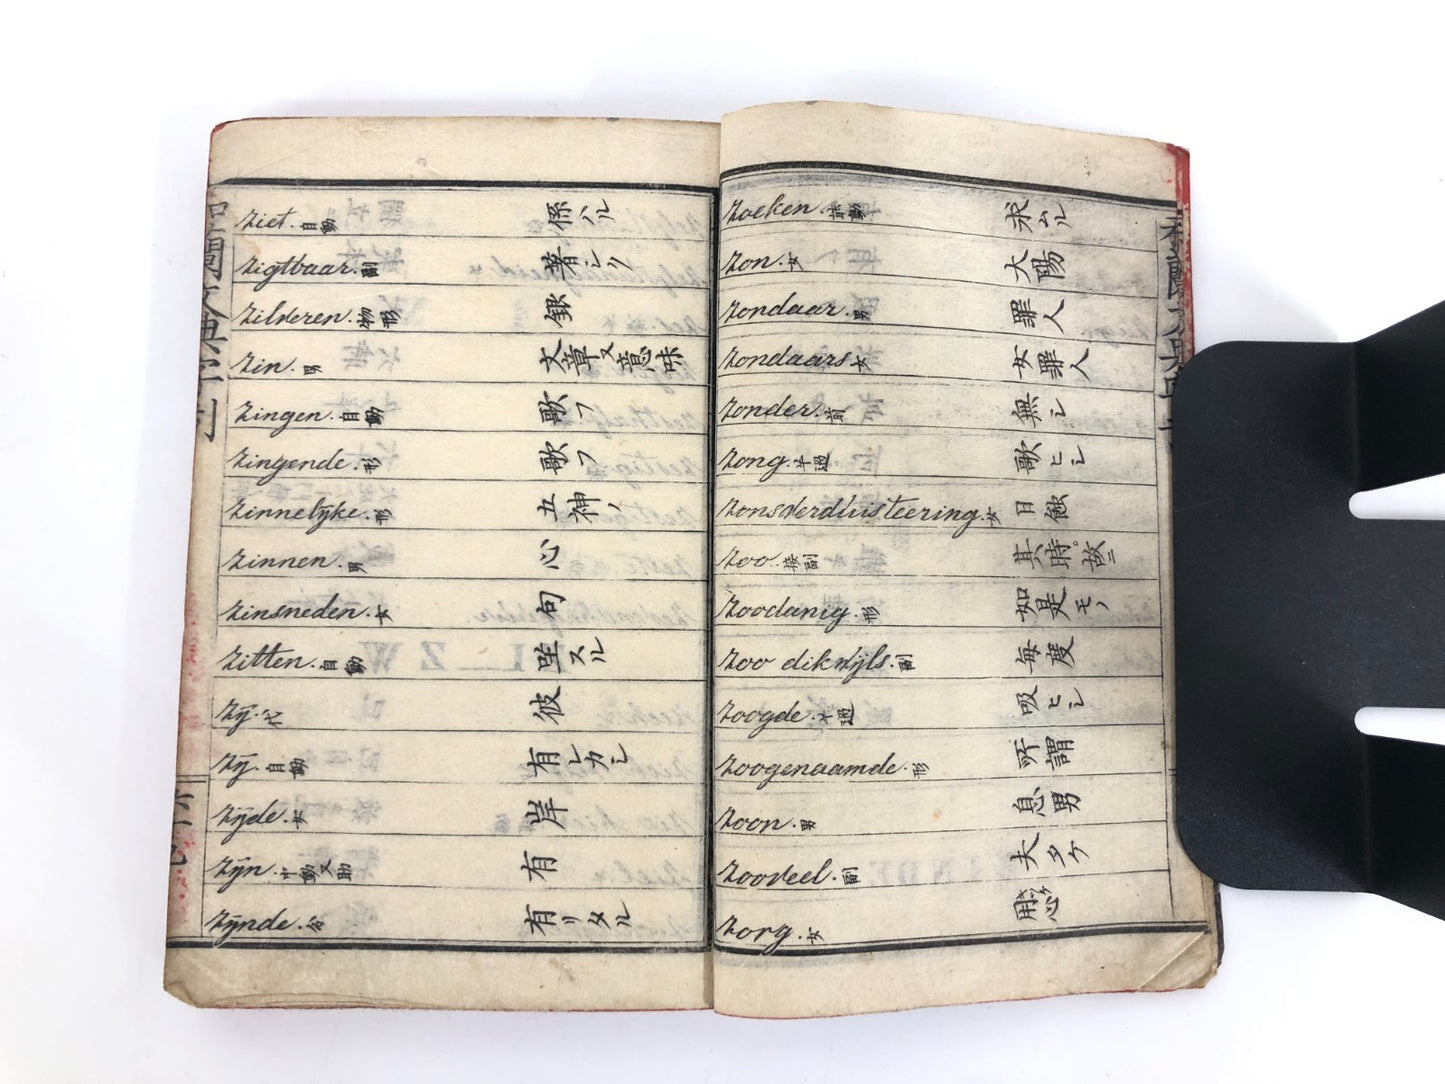 ziet. 自動 係ハル
zigtbaar. 副 著シク
zilveren. 物形 銀
zin. 男 文章又意味
zingen. 自動 歌フ
zingende. 形 歌フ
zinnelijke. 形 五神ノ
zinnen. 男 心
zinsneden. 女 句
zitten. 自動 坐スル
zij. 代 彼
zij. 自動 有レカシ
zijde. 女 岸
zijn. 中動又助 有
zijnde. 分 有リタル
zoeken. 求ムル
zon. 女 大陽
zondaar. 男 罪人
zondaars 女 女罪人
zonder. 前 無シ
zong. 半過 歌ヒシ
zonsverduisteering. 女 日蝕
zoo. 接副 其時。故ニ
zoodanig. 形 如是モノ
zoo dikwijls. 副 毎度
zoogde. 半過 吸ヒシ
zoogenaamde. 形 所謂
zoon. 男 息男
zooveel. 副 夫タケ
zorg. 女 用心